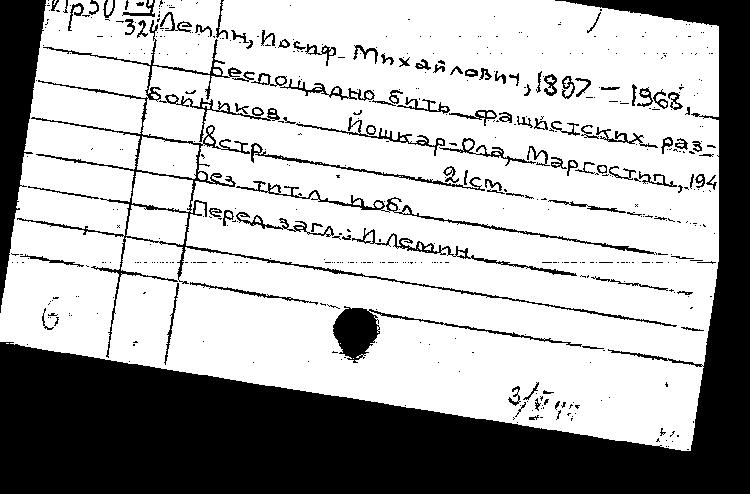 Пр30 1-4
324
Лемин, Иосиф Михайлович, 1897 – 1968.
Беспощадно бить фашистских раз-
бойников. Йошкар-Ола, Маргостип., 194
8стр. 21см.
Без тит.л. и обл.
Перед загл.: И.Лемин.
6